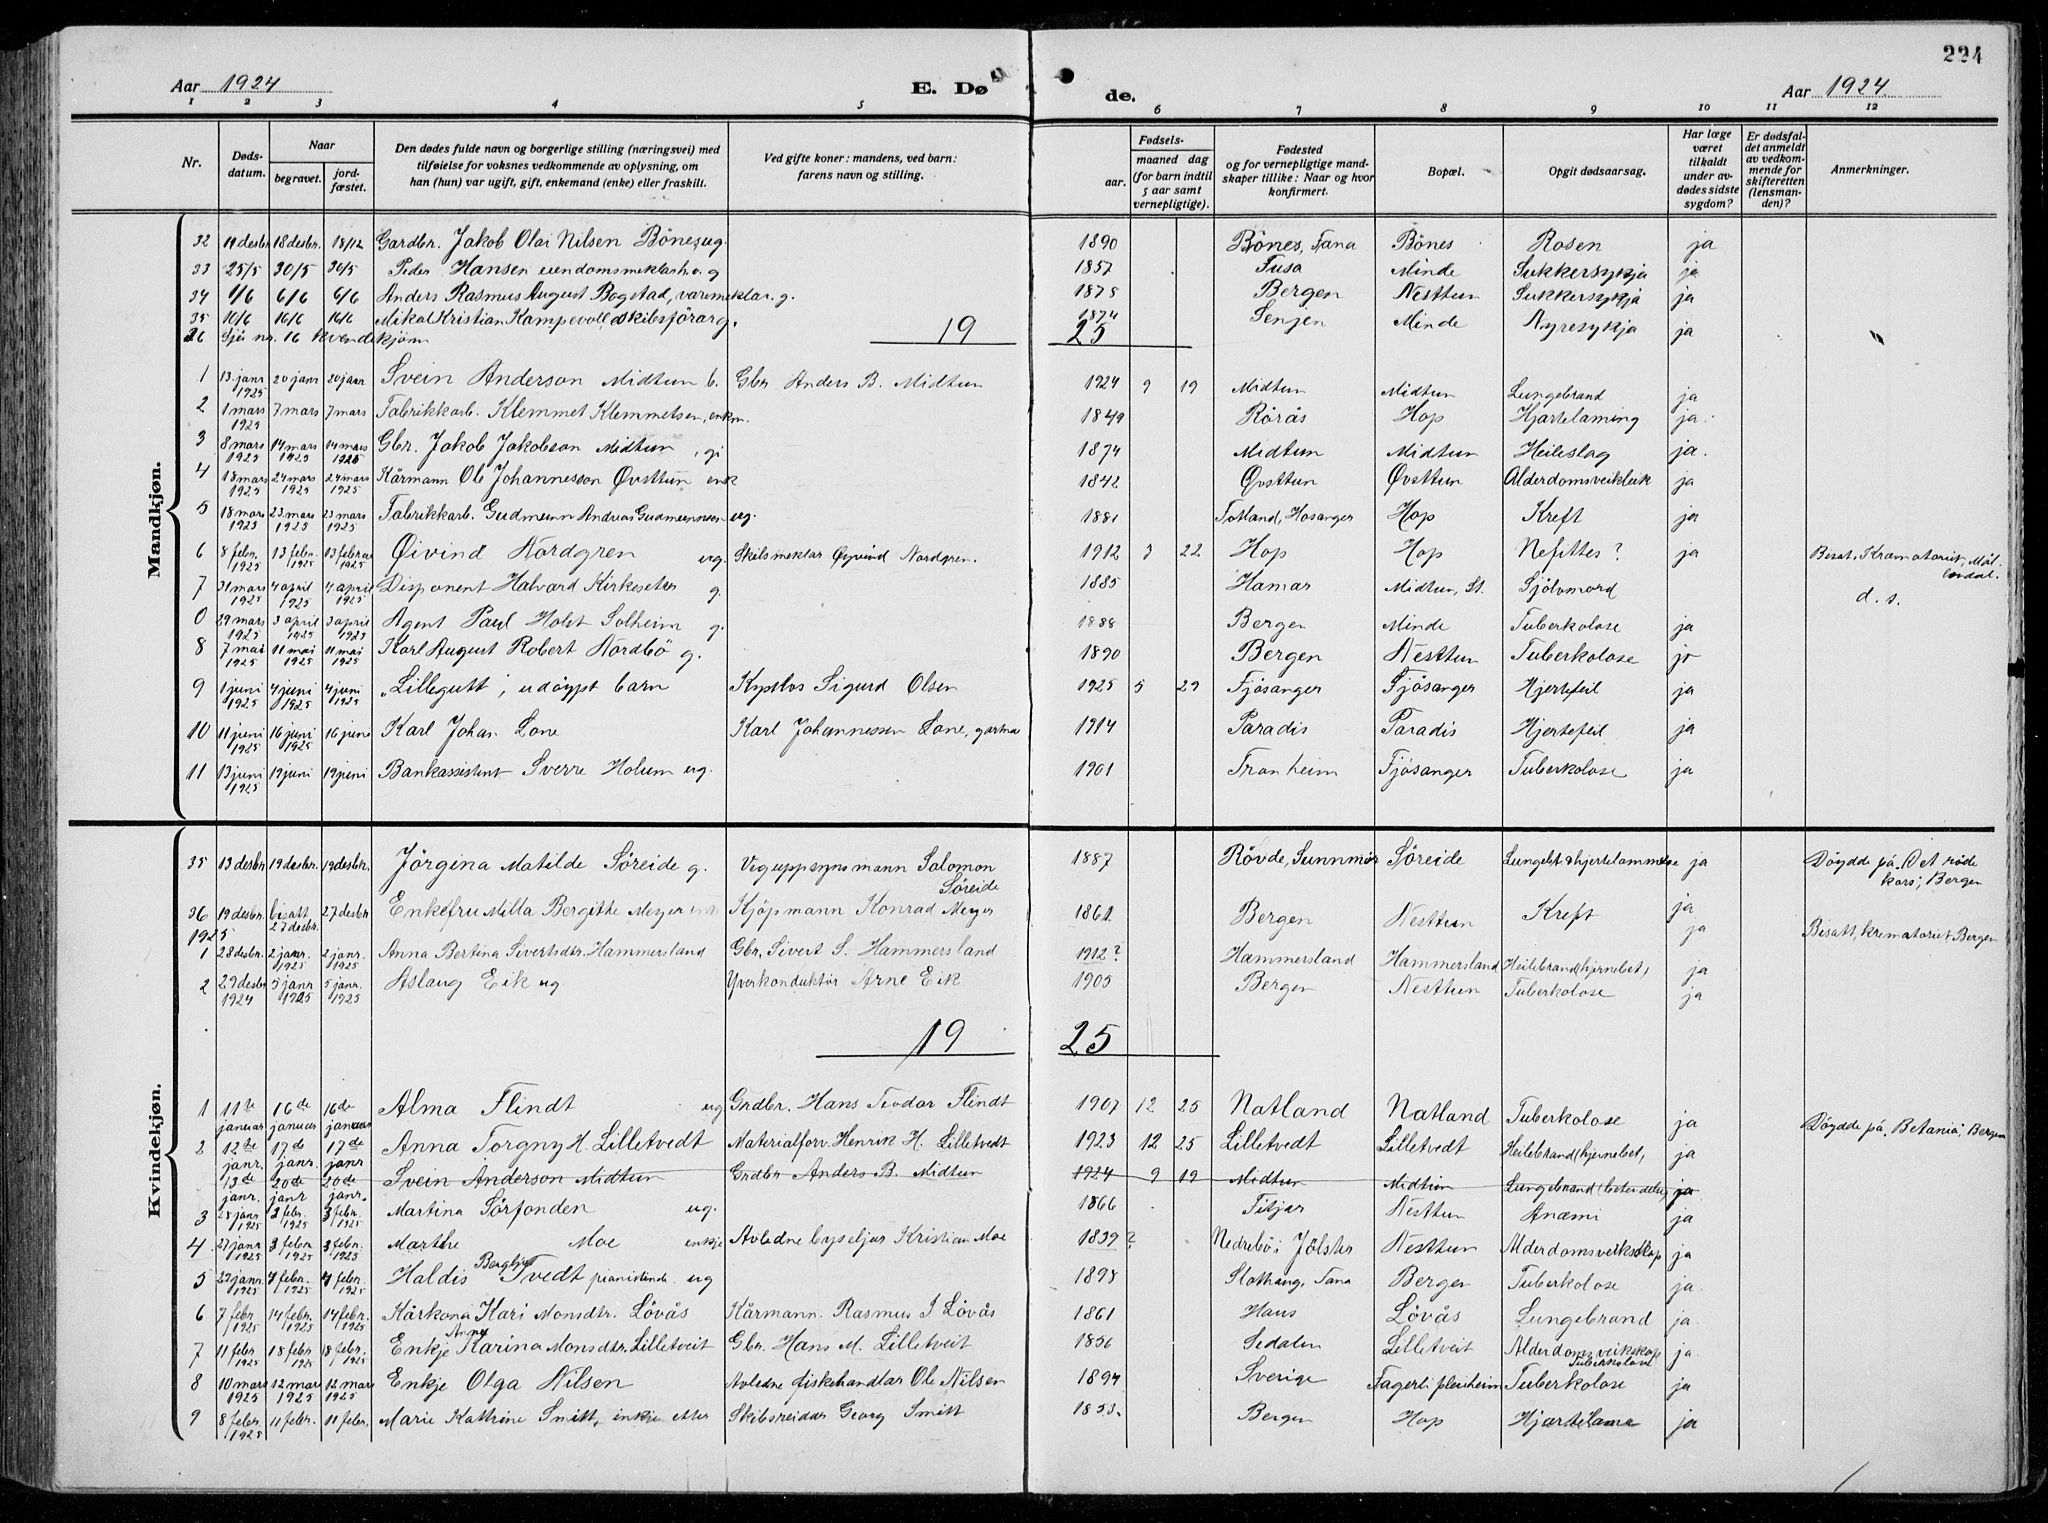 224
Aar 1924 E. Døde. Aar 1924
1 2 3 4 5 6 7 8 9 10 11 12
Nr. Døds-datum. Naar begravet. jord-fæstet. Den dødes fulde navn og borgerlige stilling (næringsvei) med tilføielse for voksnes vedkommende av oplysning, om han (hun) var ugift, gift, enkemand (enke) eller fraskilt. Ved gifte koner: mandens, ved barn: farens navn og stilling. Fødsels- aar. maaned dag (for barn indtil 5 aar samt vernepligtige). Fødested og for vernepligtige mandskaper tillike: Naar og hvor konfirmert. Bopæl. Opgit dødsaarsag. Har læge været tilkaldt under avdødes sidste sygdom? Er dødsfaldet anmeldt av vedkommende for skifteretten (lensmanden)? Anmerkninger.
Mandkjøn.
32 desbr 18 desbr. 18/12 Gardbr. Jakob Olai Nilsen Bönes ug. 1890 Bönes, Fana Bönes Rosen ja
33 25/5 30/5 30/5 Peder Hansen g 1857 Fusa Minde Sukkersykja ja
34 1/6 6/6 6/6 Anders Rasmus August Bogstad, varemeklar. g. 1875 Bergen Nesttun Sukkersykja ja
35 10/6 16/6 16/6 Mikal Kristian Kampevoll skibsförar g. 1874 Senjen Minde Nyresykja ja
36 Sjåi nr. 16 kvendekjöm 19 25
1 13. janr 1925 20 janr 20 janr Svein Anderson Midtun b. Gbr Anders B. Midtun 1924 9 19 Midtun Midtun Lungebrand ja
2 1 mars 1925 7 mars 7 mars Fabrikkarb. Klemmet Klemmetsen, enkm. 1849 Rörås Hop Hjartelaming ja.
3 8 mars 1925 14 mars 1925 14 mars 1925 Gbr. Jakob Jakobson Midtun, gi 1874 Midtun Midtun Heileslag ja.
4 18 mars 1925 24 mars 1925 24 mars 1925 Kårmann Ole Johannesson Øvsttun enk 1842 Øvsttun Øvsttun Alderdomsveikleik ja
5 18 mars 1925 23 mars 1925 23 mars 1925 Fabrikkarb. Gudmunn Andreas Gudmunnsen ug. 1881 Totland, Hosanger Hop Kreft ja
6 8 febr. 1925 13 febr. 1925 13 februar 1925 Øivind Nordgren ug. Skibsmeklar Øyvind Nordgren. 1912 3 22 Hop Hop Nefittes? ja Besat. Krematoriet, Möllendal.
7 31 mars 1925 4 april 1925 4 april 1925 Disponent Halvard Kirkeseter g. 1885 Hamar Midtun, St. Sjölvmord d. s.
0 29 mars 1925 3 april 1925 3 april 1925 Agent Paul Holst Solheim g. 1888 Bergen Minde Tuberkolose ja
8 7 mai 1925 11 mai 1925 11 mai 1925 Karl August Robert Nordbö g. 1890 Bergen Nesttun Tuberkolose ja
9 1 juni 1925 4 juni 1925 4 juni 1925 "Lillegutt", udöypt barn Sigurd Olsen 1925 5 29 Fjösanger Fjösanger Hjertefeil ja
10 11 juni 1925 16 juni 1925 16 juni Karl Johan Lone Karl Johannessen Lone, gartnar 1914 Paradis Paradis Hjertefeil ja
11 13 juni 1925 19 juni 19 juni Bankassistent Sverre Holum ug. 1901 Tronheim Fjösanger Tuberkolose ja
Kvindekjøn.
35 13 desbr 19 desbr. 19 desbr. Jörgina Matilde Söreide g. Veguppsynsmann Salomon Söreide 1887 Rövde, Sunnmör Söreide ja Döydde på "Det röde kors", Bergen
36 19 desbr. bisatt 27 desbr. 27 desbr Enkefru Milla Bergitte Meyer enk Kjöpmann Konrad Meyer 1861. Bergen Nesttun Kreft ja Besatt, krematoriet Bergen
1925
1 28 desbr. 2 janr. 1925 2 janr. 1925 Anna Bertina Sivertsdtr. Hammersland Gbr. Sivert S. Hammersland 1912? Hammersland Hammersland Heilebrand (hjernebet, ja
2 29 desbr 1924 5 janr 1925 5 janr. 1925 Aslaug Eik ug Yverkonduktör Arne Eik 1905 Bergen Nesttun Tuberkolose ja
19 25
1 11te januar 16de januar 16de januar Alma Flindt ug Grdbr. Hans Teodor Flindt 1907 12 25 Natland Natland Tuberkolose ja Döydde på "Betania", Bergen
2 12te janr. 17de janr. 17de janr Anna Torgny H. Lilletvedt Materialforv. Henrik H. Lilletvedt 1923 12 25 Lilletvedt Lilletvedt Heilebrand (hjernebet, ja
13de janr. 20de janr 20de janr. Svein Anderson Midtun Grdbr Anders B. Midtun 1924 9 19 Midtun Midtun Lungebrand ja
3 28 janr 1925 3 febr. 1925 3 febr. 1925 Martina Sörfonden ug. 1866 Fitjar Nesttun Anæmi ja
4 27 janr 1925 3 febr 1925 3 febr. 1925 Marthe Moe enkje Avledne lyseljar Kristian Moe 1839? Nedrebö i Jölster Nesttun Alderdomsveikskap ja
5 29 janr 1925 4 febr. 1925 4 febr. 1925 Haldis Bergljot Tvedt pianistinde ug 1898 Slothaug, Fana Bergen Tuberkolose ja.
6 7 febr 1925 14 febr. 1925 14 febr. 1925 Kårkona Kari Monsdtr. Lövås Kårmann. Rasmus I Lövås 1861 Haus Lövås Lungebrand ja.
7 11 febr 1925 18 febr 1925 18 febr. 1925 Enkje Anne Karina Monsdtr. Lilletveit Gbr. Hans M. Lilletveit 1856 Sedalen Lilletveit Alderdomsveikskap Tuberkolose ja.
8 10 mars 1925 12 mars 1925 12 mars 1925 Enkje Olga Nilsen Avledne fiskehandlar Ole Nilsen 1894 Sverige Fagerli pleieheim Tuberkolose ja
9 8 febr 1925 11 febr. 11 febr. Marie Kattrine Smitt, enkje etter Skibsreidar Georg Smitt 1853. Bergen Hop Hjartelame ja